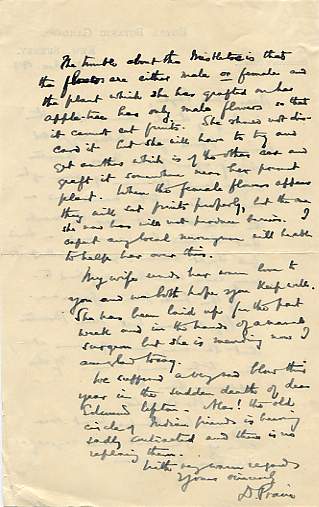 The trouble about the Mistletoe is that
the flowers are either male or female and
the plant which she has grafted on her
apple-tree has only male flowers so that
it cannot set fruits. She should not dis-
card it but she will have to try and
get another which is of the other sex and
graft it somewhere near her present
plant. When the female flowers appear
they will set fruits properly, but the one
she now has will not produce berries. I
expect any local nurseryman will be able
to help her over this.
My wife sends her warm love to
you and we both hope you keep well.
She has been laid up for the past
week and in the hands of a
surgeon but she is mending now I
am glad to say.
We suffered a very sad blow this
year in the sudden death of dear
Edmund. Alas! the old
circle of Indian friends is being
sadly contracted and there is no
replacing them.
With very warm regards
Yours sincerely
D. Prain